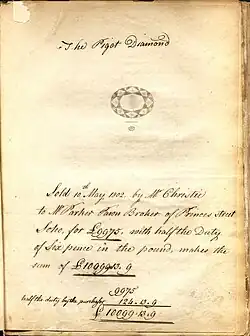 The Pigot Diamond
Sold 10th May 1802. by Mr. Christie
to Mr. Parker Pawn Broker of Princes Street
Soho, for £9975, with half the Duty
of Six pence in the pound, makes the
sum of £10099.13.9
9975
half the duty by the purchaser 124.13.9
£10099.13.9